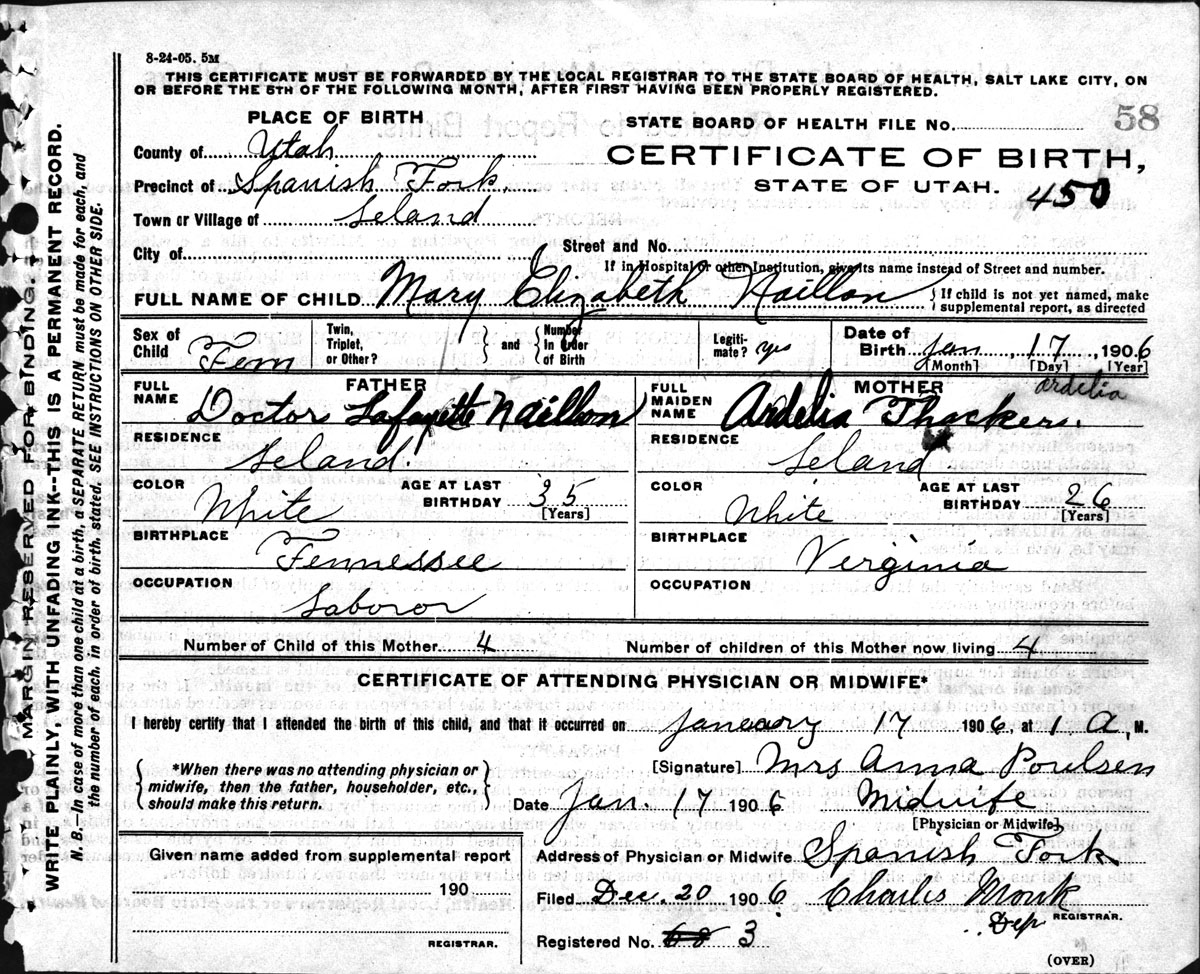 8-24-05. 5M
THIS CERTIFICATE MUST BE FORWARDED BY THE LOCAL REGISTRAR TO THE STATE BOARD OF HEALTH, SALT LAKE CITY, ON
OR BEFORE THE 5TH OF THE FOLLOWING MONTH, AFTER FIRST HAVING BEEN PROPERLY REGISTERED.
PLACE OF BIRTH
STATE BOARD OF HEALTH FILE No. 58
County of Utah
CERTIFICATE OF BIRTH,
Precinct of Spanish Fork.
STATE OF UTAH. 450
Town or Village of Leland
City of
Street and No.
If in Hospital or other Institution, give its name instead of Street and number.
FULL NAME OF CHILD Mary Elizabeth Naillon { If child is not yet named, make supplemental report, as directed
Sex of Child Fem
Twin, Triplet, or Other? } and { Number In Order of Birth
Legitimate? yes
Date of Birth Jan, 17, 1906
[Month] [Day] [Year]
FATHER
FULL NAME Doctor Lafayette Naillon
RESIDENCE Leland.
COLOR White
AGE AT LAST BIRTHDAY 35
[Years]
BIRTHPLACE Tennessee
OCCUPATION Laboror
MOTHER
Ardelia
FULL MAIDEN NAME Ardelia Thackers.
RESIDENCE Leland
COLOR White
AGE AT LAST BIRTHDAY 26
[Years]
BIRTHPLACE Virginia
Number of Child of this Mother 4 Number of children of this Mother now living 4
CERTIFICATE OF ATTENDING PHYSICIAN OR MIDWIFE*
I hereby certify that I attended the birth of this child, and that it occurred on January 17 1906, at 1 A, M.
{ *When there was no attending physician or midwife, then the father, householder, etc., should make this return. }
[Signature] Mrs Anna Poulsen
Date Jan. 17 1906 Midwife
[Physician or Midwife]
Given name added from supplemental report
190
REGISTRAR.
Address of Physician or Midwife Spanish Fork
Filed Dec. 20 1906 Charles Monk
Dep REGISTRAR.
Registered No. 3
(OVER)
MARGIN RESERVED FOR BINDING.
WRITE PLAINLY, WITH UNFADING INK--THIS IS A PERMANENT RECORD.
N. B.—In case of more than one child at a birth, a SEPARATE RETURN must be made for each, and
the number of each, in order of birth, stated. SEE INSTRUCTIONS ON OTHER SIDE.